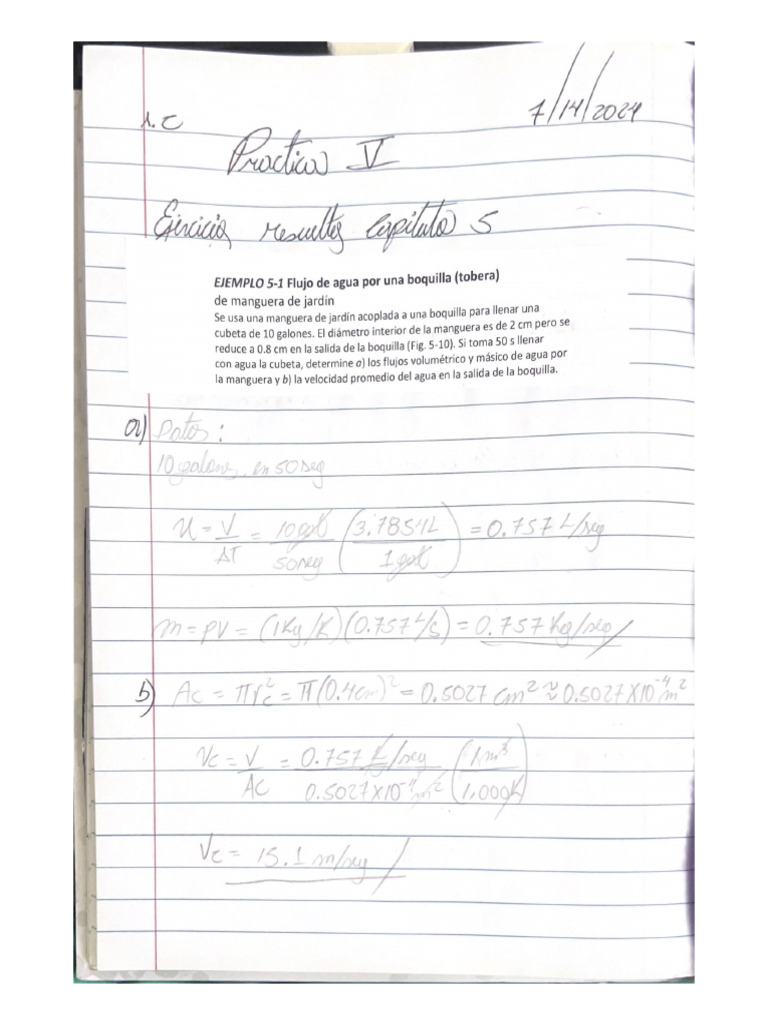 1.C
7/14/2024
Practica V
Ejercicios resueltos Capitulo 5
EJEMPLO 5-1 Flujo de agua por una boquilla (tobera)
de manguera de jardín
Se usa una manguera de jardín acoplada a una boquilla para llenar una
cubeta de 10 galones. El diámetro interior de la manguera es de 2 cm pero se
reduce a 0.8 cm en la salida de la boquilla (Fig. 5-10). Si toma 50 s llenar
con agua la cubeta, determine a) los flujos volumétrico y másico de agua por
la manguera y b) la velocidad promedio del agua en la salida de la boquilla.
a) Datos:
10 galones en 50 seg
u = V/ΔT = 10 gal/50 seg (3.7854 L/1 gal) = 0.757 L/seg
m = ρV = (1 Kg/K)(0.757 L/s) = 0.757 kg/seg
b) Ac = πrc² = π(0.4 cm)² = 0.5027 cm² ≈ 0.5027 X10⁻⁴ m²
Vc = V/AC = 0.757 L/seg / 0.5027X10⁻⁴ m² (1 m³/1,000 K)
Vc = 15.1 m/seg